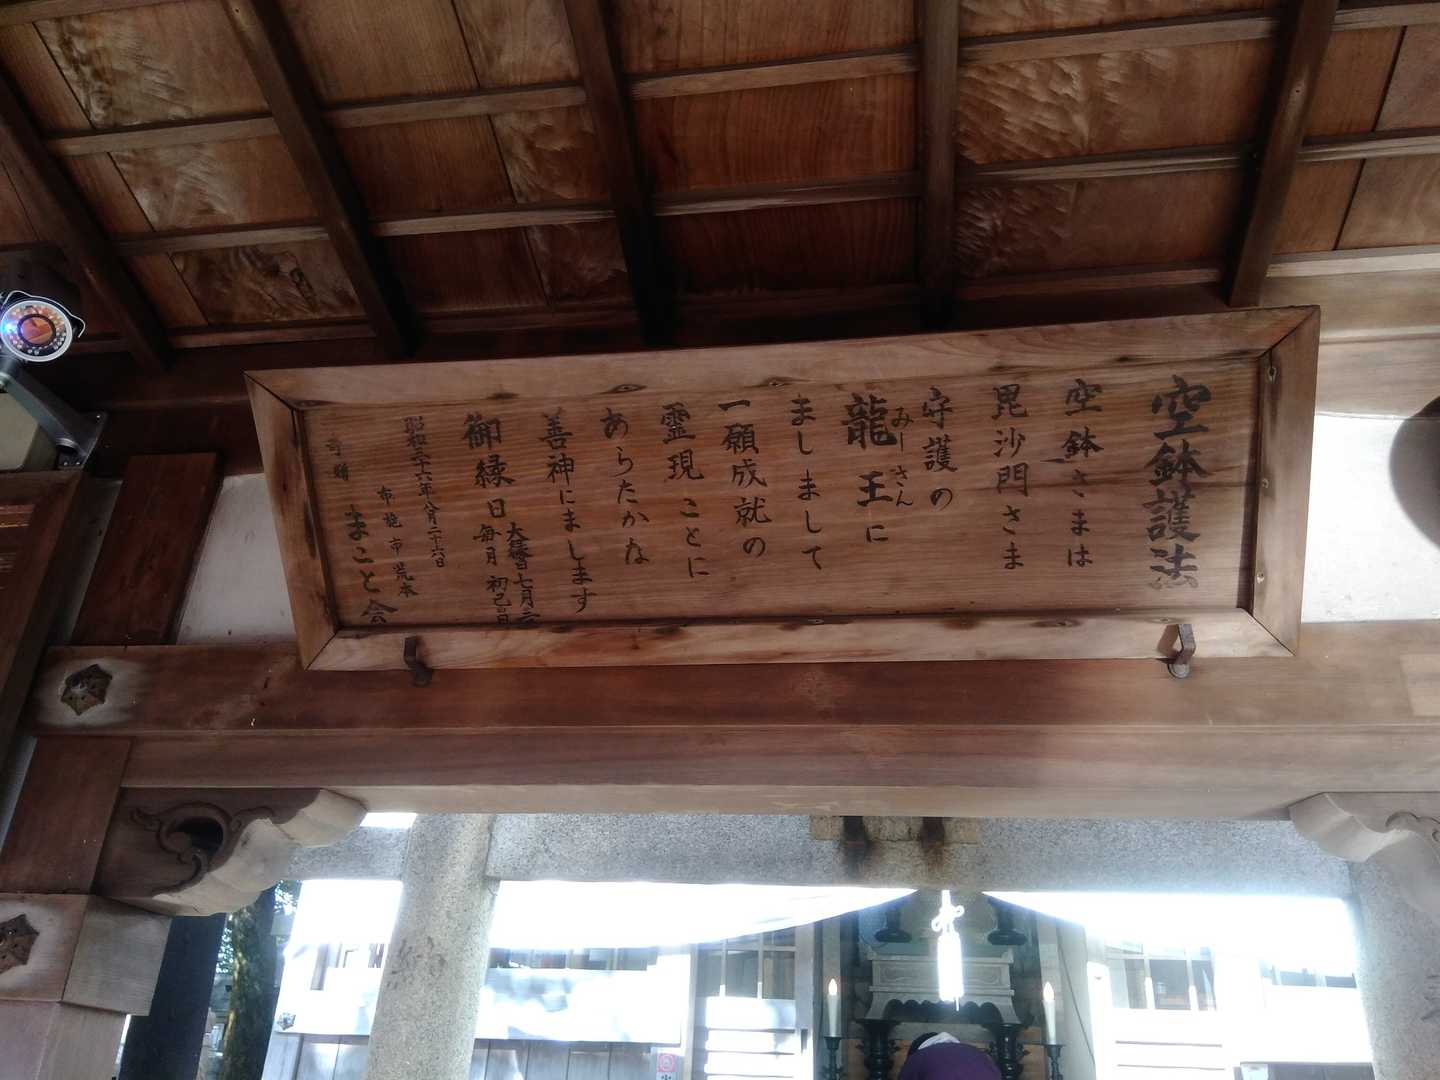 空鉢護法
空鉢さまは
毘沙門さま
守護の
龍王に
みーさん
ましまして
一願成就の
霊現ことに
あらたかな
善神にまします
御縁日毎月初己の日
大縁日七月三
昭和三十六年八月二十六日
布施市荒本
寄贈まこと会